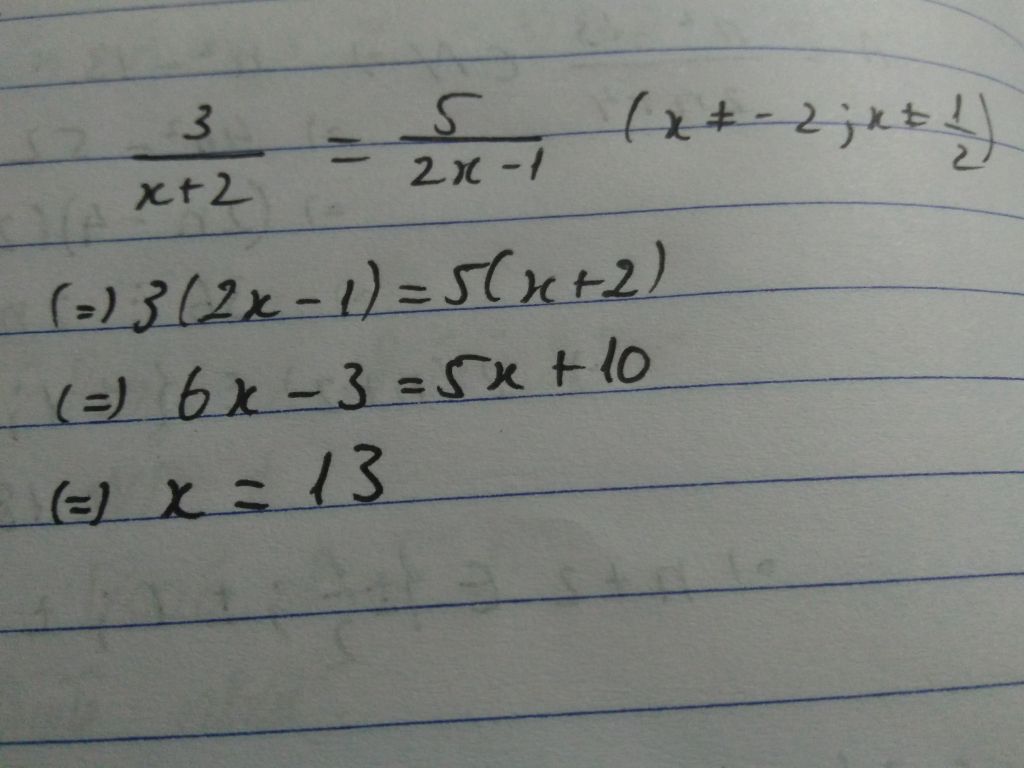 3/(x+2) = 5/(2x-1) (x ≠ -2; x ≠ 1/2)
(=) 3(2x - 1) = 5(x+2)
(=) 6x - 3 = 5x + 10
(=) x = 13